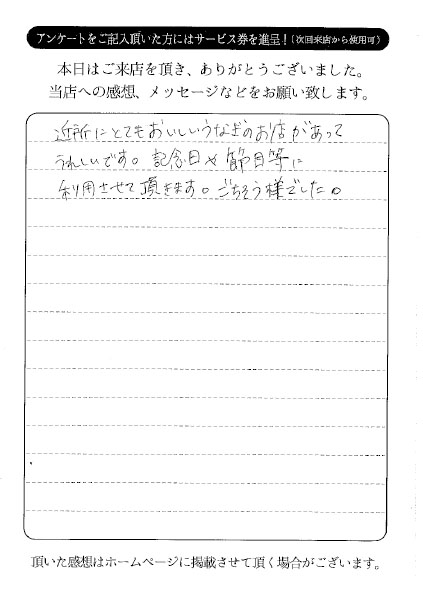 アンケートをご記入頂いた方にはサービス券を進呈！（次回来店から使用可）
本日はご来店を頂き、ありがとうございました。
当店への感想、メッセージなどをお願い致します。
近所にとてもおいしいうなぎのお店があって
うれしいです。記念日や節目等に
利用させて頂きます。ごちそう様でした。
頂いた感想はホームページに掲載させて頂く場合がございます。